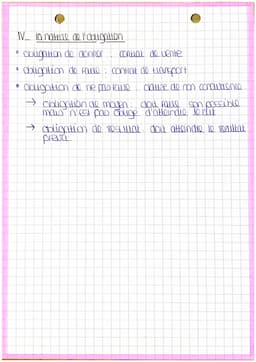 IV_ la nature de l'obligation
• obligation de donner : contrat de vente
• obligation de faire : contrat de transport
• obligation de ne pas faire : clause de non concurrence
→ obligation de moyen : doit faire son possible
mais n'est pas obligé d'atteindre le but
→ obligation de résultat : doit atteindre le résultat
prévu.